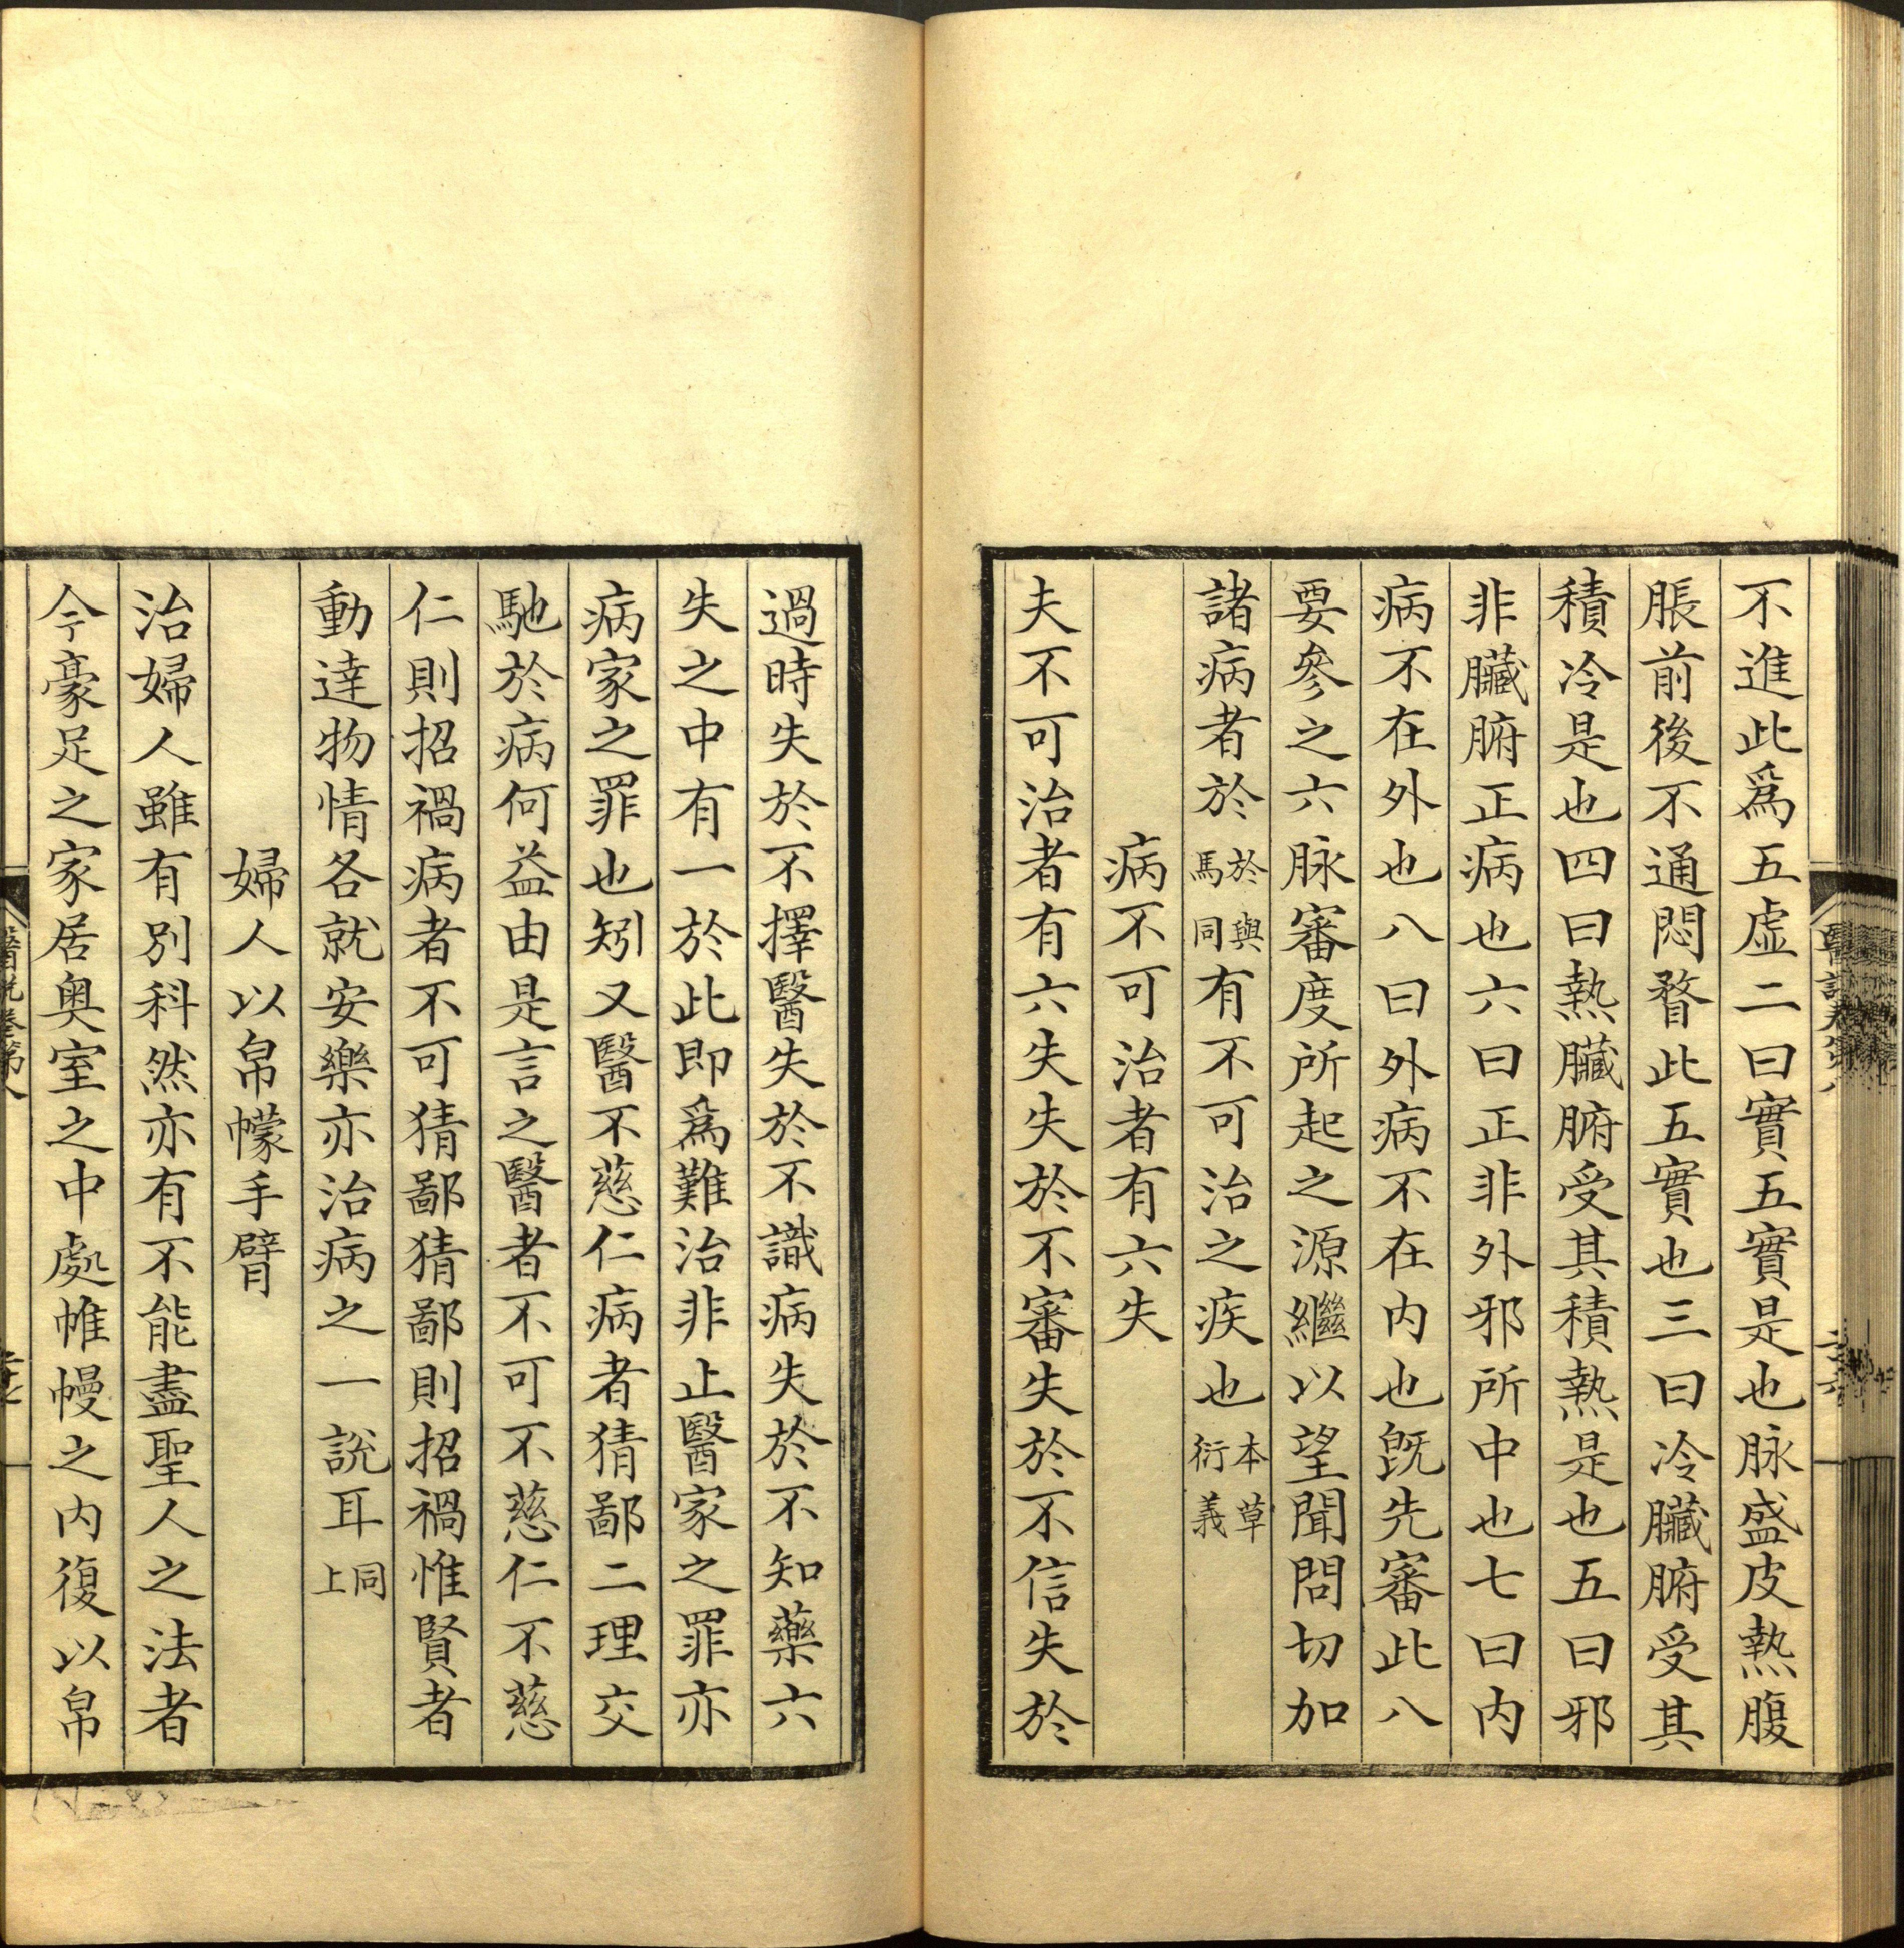 不進此爲五虛二曰實五實是也脉盛皮熱腹
脹前後不通悶瞀此五實也三曰冷臟腑受其
積冷是也四曰熱臟腑受其積熱是也五曰邪
非臟腑正病也六曰正非外邪所中也七曰内
病不在外也八曰外病不在内也旣先審此八
要參之六脉審度所起之源繼以望聞問切加
諸病者於於與馬同有不可治之疾也本草衍義
病不可治者有六失
夫不可治者有六失失於不審失於不信失於
過時失於不擇醫失於不識病失於不知藥六
失之中有一於此即爲難治非止醫家之罪亦
病家之罪也矧又醫不慈仁病者猜鄙二理交
馳於病何益由是言之醫者不可不慈仁不慈
仁則招禍病者不可猜鄙猜鄙則招禍惟賢者
動達物情各就安樂亦治病之一說耳同上
婦人以帛幪手臂
治婦人雖有別科然亦有不能盡聖人之法者
今豪足之家居奥室之中處帷幔之内復以帛
醫說卷第八